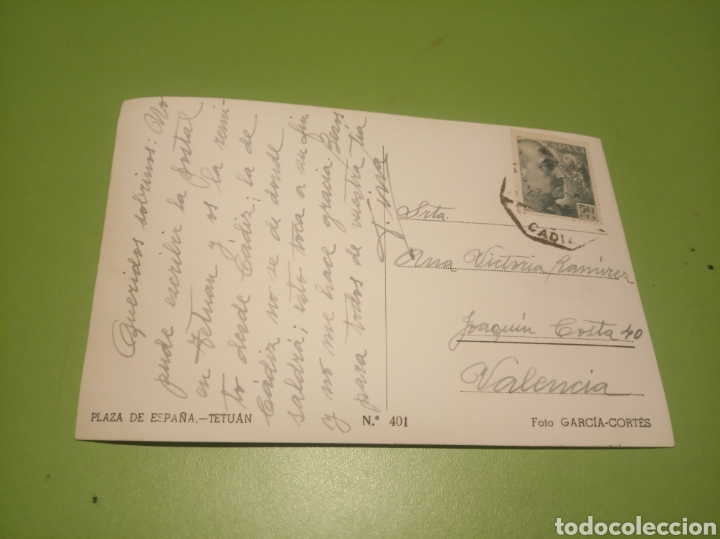 Queridos sobrinos: No
pude escribir la postal
en Tetuan y os la remi-
to desde Cádiz; la de
Cádiz no se de donde
saldrá; esto toca a su fin
y no me hace gracia. Besos
para todos de vuestra tía
ESPAÑA
CADIZ
Srta
Ana Victoria Ramírez
Joaquín Costa 40
Valencia
PLAZA DE ESPAÑA.—TETUÁN
N.° 401
Foto GARCÍA-CORTÉS
todocoleccion